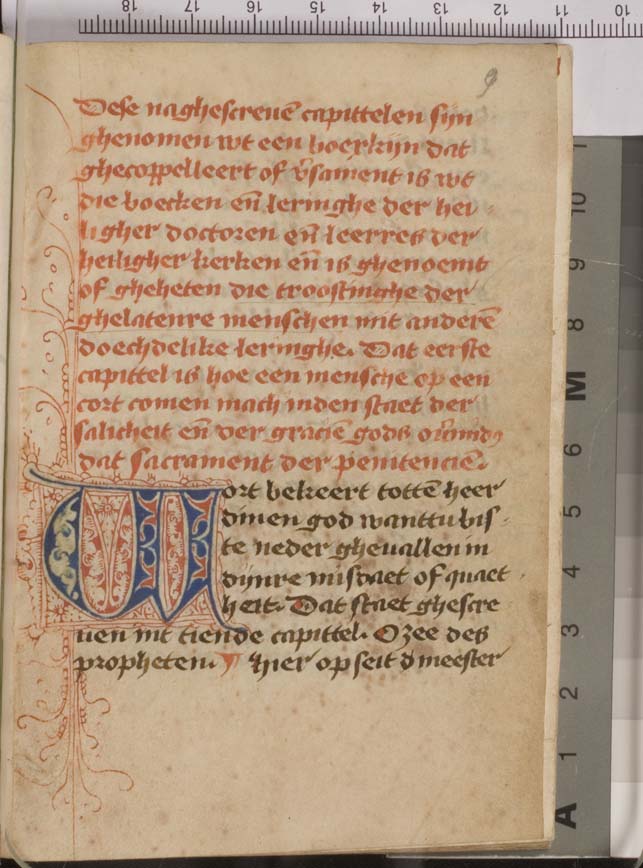 9
Dese naghescreuē capittelen sijn
ghenomen wt een boexkijn dat
ghecoppelleert of v̄sament is wt
die boecken en̄ leringhe der hei
ligher doctoren en̄ leerres der
heiligher kerken en̄ is ghenoemt
of gheheten die troostinghe der
ghelatenre menschen mit anderē
doechdelike leringhe. Dat eerste
capittel is hoe een mensche op een
cort comen mach inden staet der
salicheit en̄ der graciē gods
dat sacrament der penitenciē.
Wort bekeert tottē heer
dinen god wanttu bis
te neder gheuallen in
dijnre misdaet of quaet
heit. Dat staet ghescre
uen int tiende capittel. Ozee des
propheten. ¶ hier op seit d meester
18 17 16 15 14 13 12 11 10
10
9
8
M
6
5
4
3
2
1
A